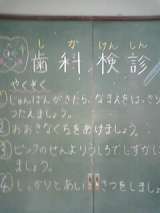 しか けんしん
歯科検診
やくそく
①じゅんばんがきたら、なまえをはっきり
つたえましょう。
②おおきなくちをあけましょう。
③ピンクのせんより うしろで しずかに
ましょう。
④しっかりとあいさつをしましょう。